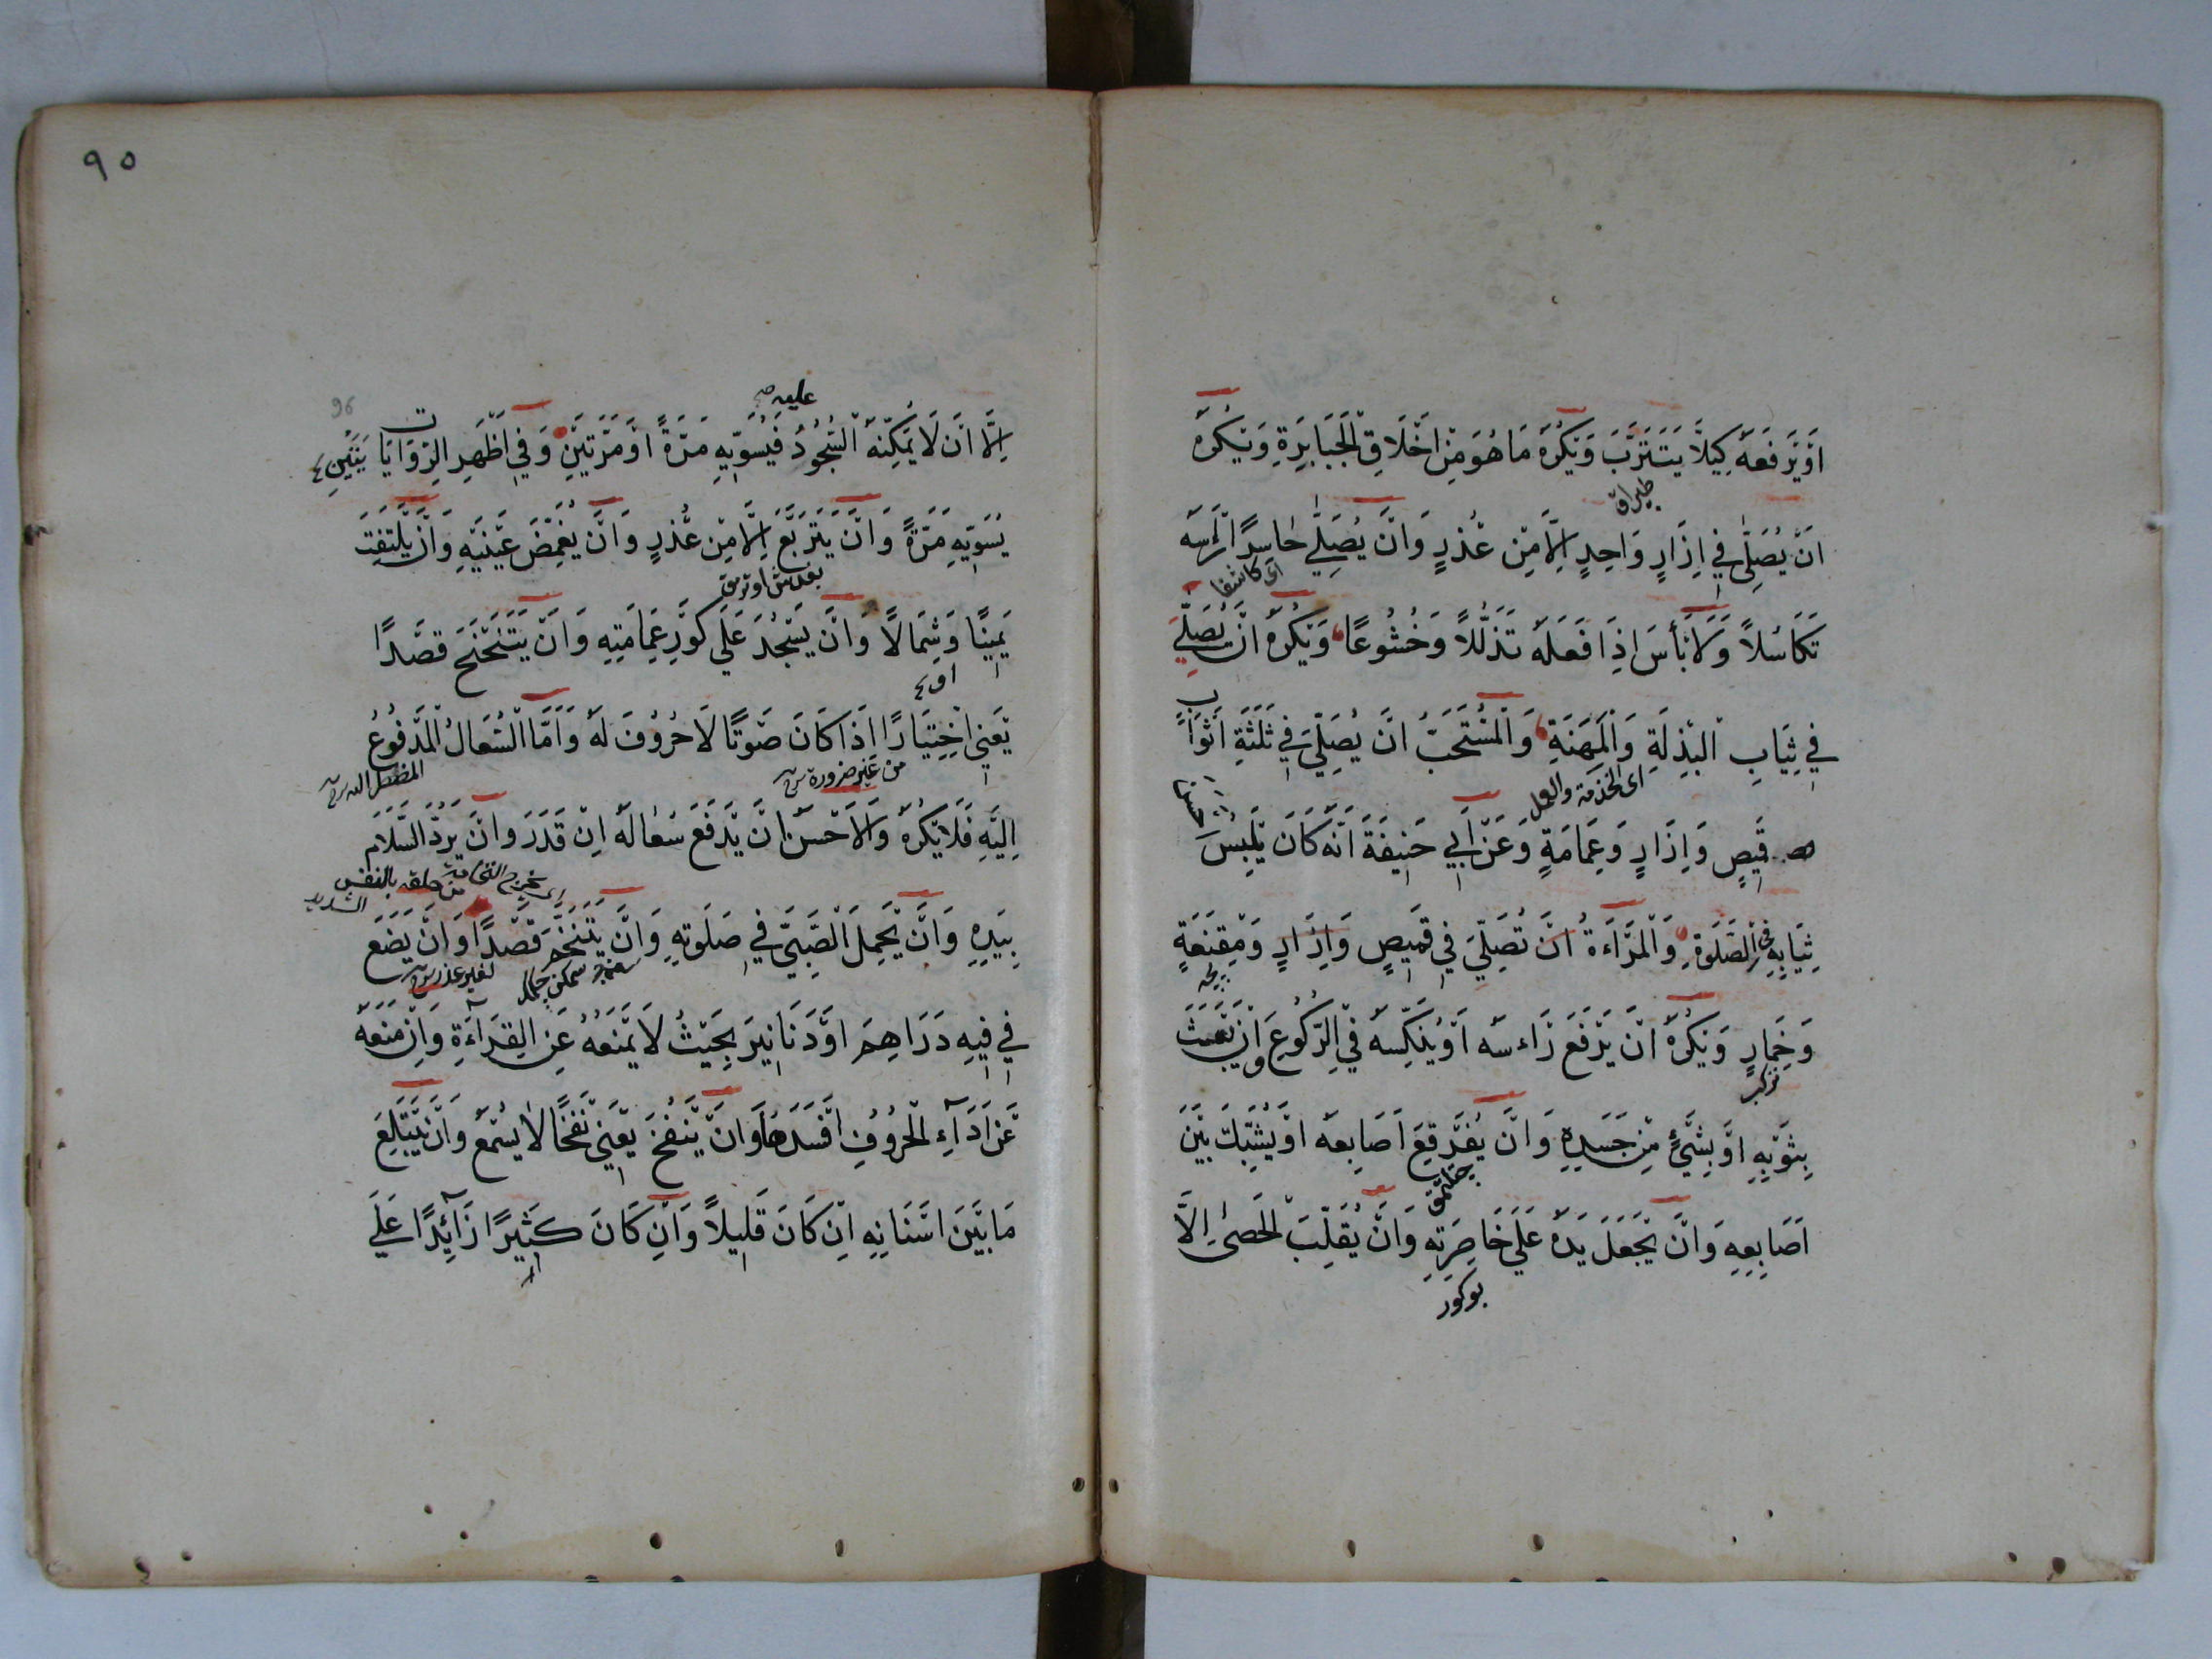 اَوْ يَرْفَعَهُ كَيْلَا يَتَتَرَّبَ وَيُكْرَهُ مَا هُوَ مِنْ اَخْلَاقِ الْجَبَابِرَةِ وَيُكْرَهُ
اَنْ يُصَلِّىَ فِي اِزَارٍ وَاحِدٍ اِلَّا مِنْ عُذْرٍ وَاَنْ يُصَلِّيَ حَاسِرًا رَأْسَهُ
اى كاشفا
تَكَاسُلًا وَلَا بَأْسَ اِذَا فَعَلَهُ تَذَلُّلًا وَخُشُوعًا وَيُكْرَهُ اَنْ يُصَلِّيَ
فِي ثِيَابِ الْبِذْلَةِ وَالْمَهَنَةِ وَالْمُسْتَحَبُّ اَنْ يُصَلِّيَ فِي ثَلَثَةِ اَثْوَابٍ
اى الخدمة والعمل
قَمِيصٍ وَاِزَارٍ وَعِمَامَةٍ وَعَنْ اَبِي حَنِيفَةَ اَنَّهُ كَانَ يَلْبَسُ
ثِيَابِهِ فِي الصَّلَوةِ وَالْمَرْاَءةُ اَنْ تُصَلِّيَ فِي قَمِيصٍ وَاِزَارٍ وَمِقْنَعَةٍ
وَخِمَارٍ وَيُكْرَهُ اَنْ يَرْفَعَ رَاْءسَهُ اَوْ يُنَكِّسَهُ فِي الرُّكُوعِ وَاَنْ يَعْبَثَ
بِثَوْبِهِ اَوْ بِشَيْءٍ مِنْ جَسَدِهِ وَاَنْ يُفَرْقِعَ اَصَابِعَهُ اَوْ يُشَبِّكَ بَيْنَ
اَصَابِعِهِ وَاَنْ يَجْعَلَ يَدَهُ عَلَي خَاصِرَتِهِ وَاَنْ يُقَلِّبَ الْحَصٰى اِلَّا
بوكور
٩٥
96
عليه صح
اِلَّا اَنْ لَا يُمَكِّنَهُ السُّجُودُ فَيُسَوِّيهِ مَرَّةً اَوْ مَرَّتَيْنِ وَفِي اَظْهَرِ الرِّوَايَتَيْنِ
يُسَوِّيهِ مَرَّةً وَاَنْ يَتَرَبَّعَ اِلَّا مِنْ عُذْرٍ وَاَنْ يُغَمِّضَ عَيْنَيْهِ وَاَنْ يَلْتَفِتَ
يَمِينًا وَشِمَالًا وَاَنْ يَسْجُدَ عَلَي كَوْرِ عِمَامَتِهِ وَاَنْ يَتَنَحْنَحَ قَصْدًا
يَعْنِي اِخْتِيَارًا اِذَا كَانَ صَوْتًا لَا حُرُوفَ لَهُ وَاَمَّا السُّعَالُ الْمَدْفُوعُ
من غير ضرورة
المضطر اليه
اِلَيْهِ فَلَا يُكْرَهُ وَالْاَحْسَنُ اَنْ يَدْفَعَ سُعَالَهُ اِنْ قَدَرَ وَاَنْ يَرُدَّ السَّلَامَ
من حلقه بالنفس الشديد
بِيَدِهِ وَاَنْ يَحْمِلَ الصَّبِيَّ فِي صَلَوتِهِ وَاَنْ يَتَنَخَّمَ قَصْدًا وَاَنْ يَضَعَ
لغير عذر
فِي فِيهِ دَرَاهِمَ اَوْ دَنَانِيرَ بِحَيْثُ لَا يَمْنَعُهُ عَنِ الْقِرَاءَةِ وَاِنْ مَنَعَهُ
عَنْ اَدَآءِ الْحُرُوفِ اَفْسَدَهَا وَاَنْ يَنْفُخَ يَعْنِي نَفْخًا لَا يُسْمَعُ وَاَنْ يَبْتَلِعَ
مَا بَيْنَ اَسْنَانِهِ اِنْ كَانَ قَلِيلًا وَاِنْ كَانَ كَثِيرًا زَآئِدًا عَلَي